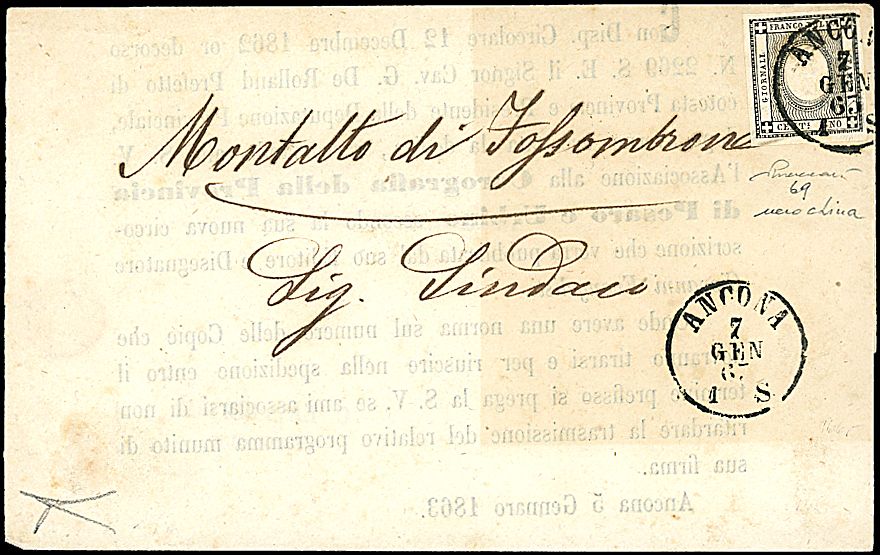 Con Disp. Circolare 12 Decembre 1862 or decorso
N. 2269 S. E. il Signor Cav. G. De Rolland Prefetto di
cotesta Provincia e Presidente della Deputazione Provinciale,
FRANCO BOLLO
GIORNALI
CENT1 UNO
ANCONA
7
GEN
63
1 S
Montalto di Fossombrone
S. V.
l'Associazione alla Corografia della Provincia
69
nero china
di Pesaro e Urbino secondo la sua nuova circo-
scrizione che verrà pubblicata dal suo Editore e Disegnatore
Sig. Sindaco
ANCONA
7
GEN
6
1 S
avere una norma sul numero delle Copie che
dovranno tirarsi e per riuscire nella spedizione entro il
termine prefisso si prega la S. V. se ami associarsi di non
ritardare la trasmissione del relativo programma munito di
sua firma.
Ancona 5 Gennaro 1863.